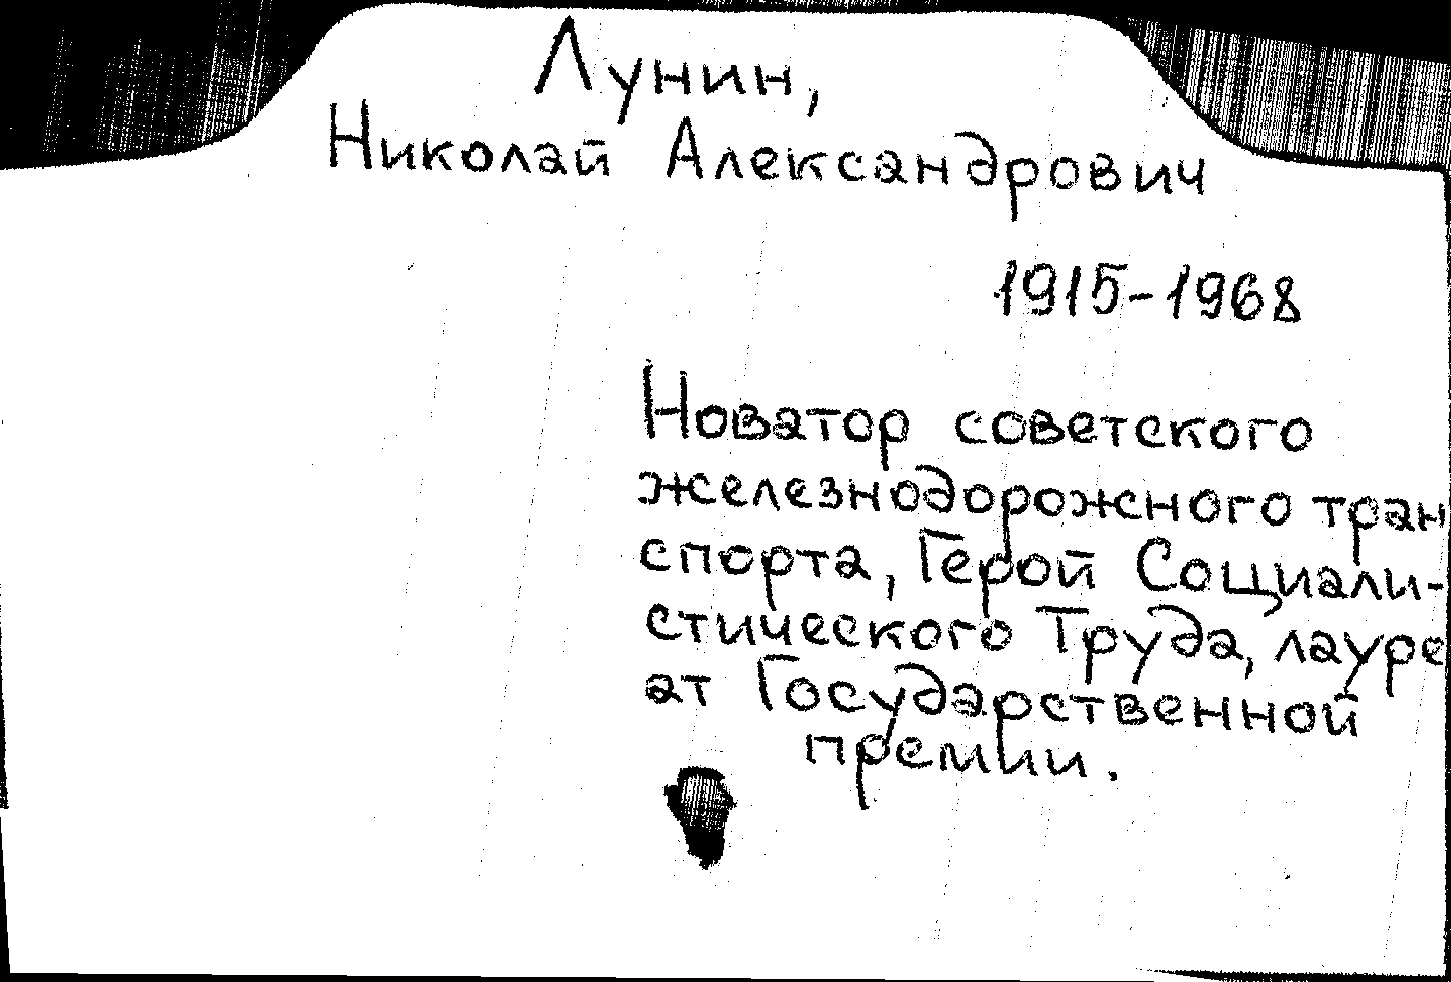 Лунин,
Николай Александрович
1915-1968
Новатор советского
железнодорожного тран
спорта, Герой Социали-
стического Труда, лауре
ат Государственной
премии.